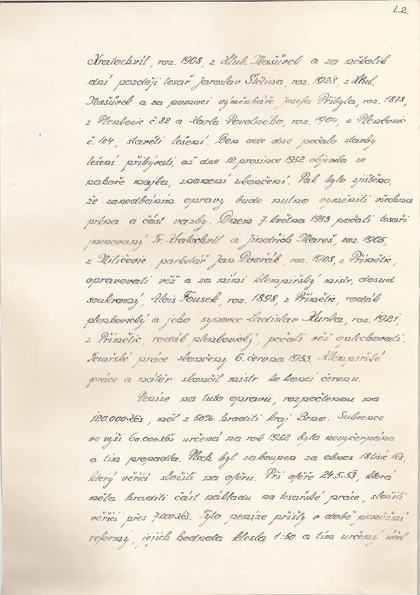 L.2.
Kratochvíl, roz. 1908, z Hlub. Mašůvek a za několik
dní později tesař Jaroslav Slečina, roz. 1923, z Hlub.
Mašůvek a za pomoci výměnkáře Josefa Přibyla, roz. 1878,
z Plenkovic č. 82 a Karla Novotného, roz. 1904, z Plenkovic
č. 104, stavěti lešení. Den ode dne počalo stavby
lešení přibývati, až dne 12. prosince 1952 objevila se
nahoře májka, znamení ukončení. Pak bylo zjištěno,
že zanedbáním opravy bude nutno vyměniti všechna
prkna a část vazby. Dnem 7. května 1953 počali tesaři
jmenovaný Fr. Kratochvíl a Jindřich Mareš, roz. 1905,
z Miličovic, parketář Jan Dvořák, roz. 1908, z Přímětic,
opravovati věž a za nimi klempířský mistr, dosud
soukromý, Alois Fousek, roz. 1898, z Přímětic, rodák
plenkovický a jeho synovec Ladislav Hurka, roz. 1921,
z Přímětic, rodák plenkovický, počali věž oplechovati.
Tesařské práce skončeny 6. června 1953. Klempířské
práce a nátěr skončil mistr ke konci června.
Peníze na tuto opravu, rozpočtenou na
120.000 Kčs, měl z 50% hraditi kraj Brno. Subvence
ve výši 60.000 Kčs určená na rok 1952 byla nevyčerpána
a tím propadla. Plech byl zakoupen za obnos 18 tisíc Kčs,
který věřící složili na ofěru. Při ofěře 24.5.53, která
měla hraditi část nákladu na tesařské práce, složili
věřící přes 7.000 Kčs. Tyto peníze přišly v době peněžní
reformy, jejich hodnota klesla 1:50 a tím určený účel